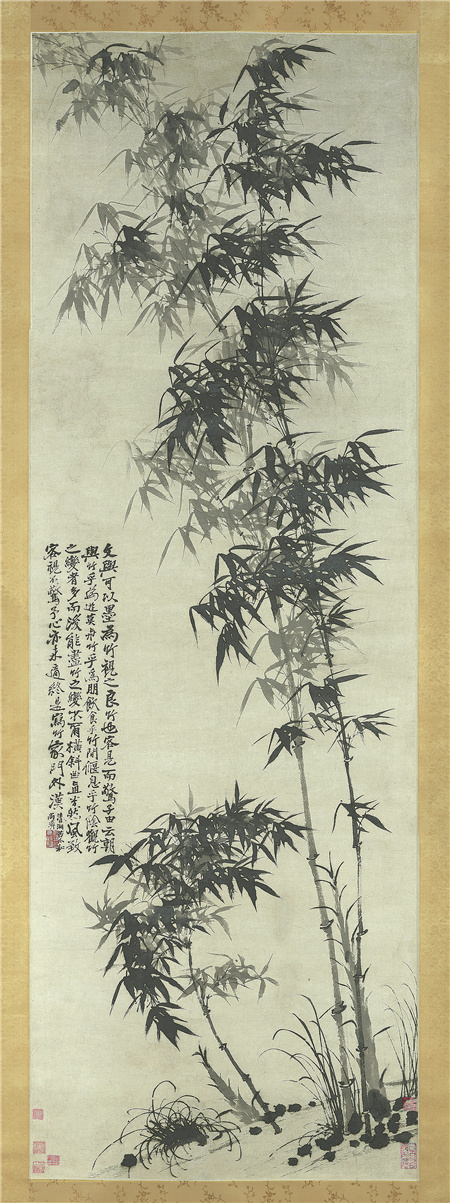 文與可以墨為竹視之良竹也客見而驚子由云朝
與竹乎為遊莫與竹乎為朋飲食乎竹間偃息乎竹陰觀竹
之變者多而後能盡竹之變不橫斜曲直風致
客視不驚予心亦未適終是寫竹家門外漢
清湘